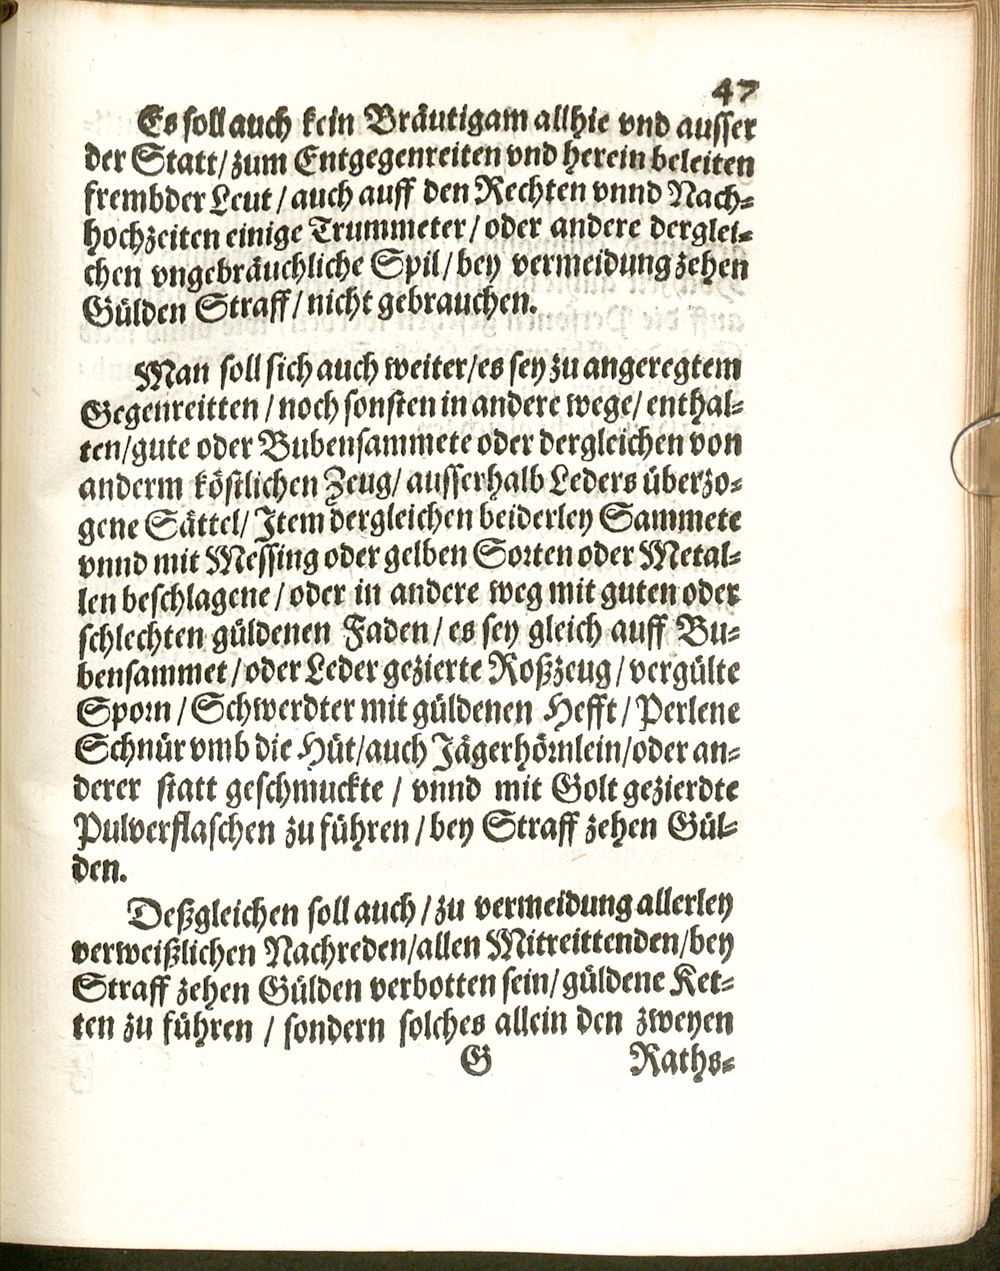 47
Es soll auch kein Bräutigam allhie vnd ausser
der Statt/ zum Entgegenreiten vnd herein beleiten
frembder Leut / auch auff den Rechten vnnd Nach-
hochzeiten einige Trummeter / oder andere derglei-
chen vngebräuchliche Spil / bey vermeidung zehen
Gülden Straff / nicht gebrauchen.
Man soll sich auch weiter/ es sey zu angeregtem
Gegenreitten / noch sonsten in andere wege/ enthal-
ten/ gute oder Bubensammete oder dergleichen von
anderm köstlichen Zeug/ ausserhalb Leders überzo-
gene Sättel/ Item dergleichen beiderley Sammete
vnnd mit Messing oder gelben Sorten oder Metal-
len beschlagene / oder in andere weg mit guten oder
schlechten güldenen Faden / es sey gleich auff Bu-
bensammet / oder Leder gezierte Roßzeug / vergülte
Sporn / Schwerdter mit güldenen Hefft / Perlene
Schnür vmb die Hüt/ auch Jägerhörnlein/ oder an-
derer statt geschmuckte / vnnd mit Golt gezierdte
Pulverflaschen zu führen / bey Straff zehen Gül-
den.
Deßgleichen soll auch / zu vermeidung allerley
verweißlichen Nachreden/ allen Mitreittenden/ bey
Straff zehen Gülden verbotten sein/ güldene Ket-
ten zu führen / sondern solches allein den zweyen
G Raths-